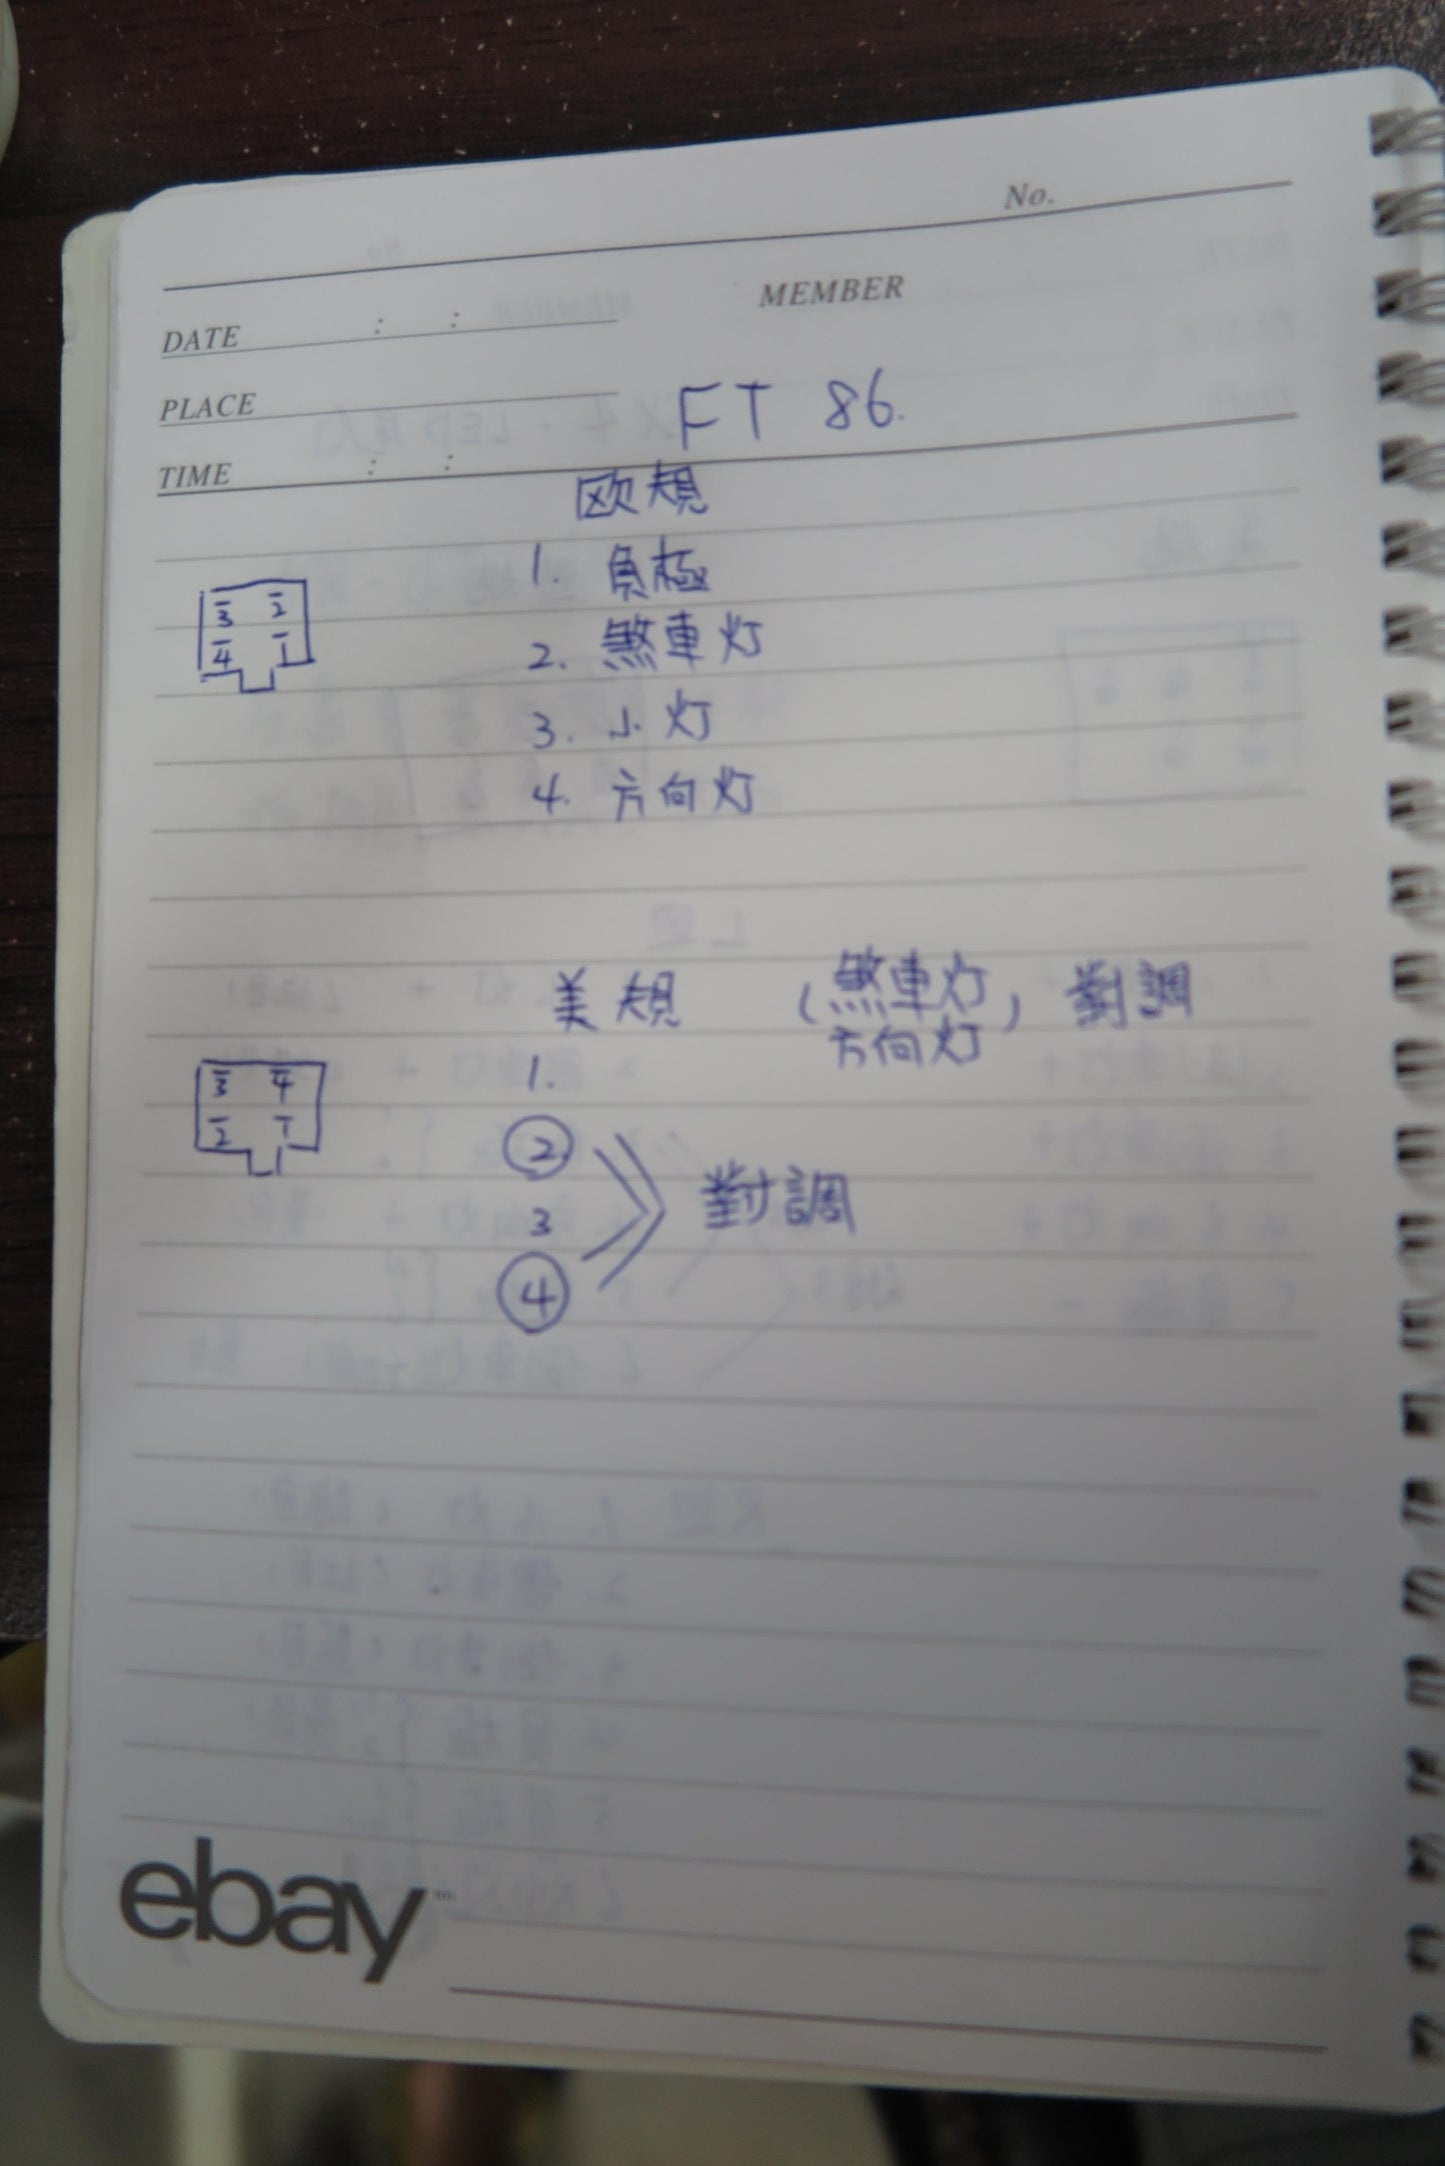 No.
DATE : : MEMBER
PLACE
FT 86.
TIME : :
欧規
1. 負極
2. 煞車灯
3. 小灯
4. 方向灯
3 2
4 1
美規 (煞車灯 方向灯) 對調
1.
2
3
4
對調
3 4
2 1
ebay™